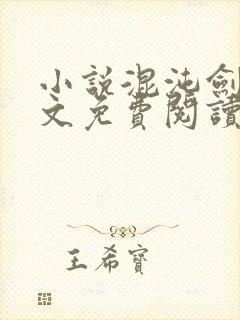 小說混沌劍
文免費閱讀
王希寶